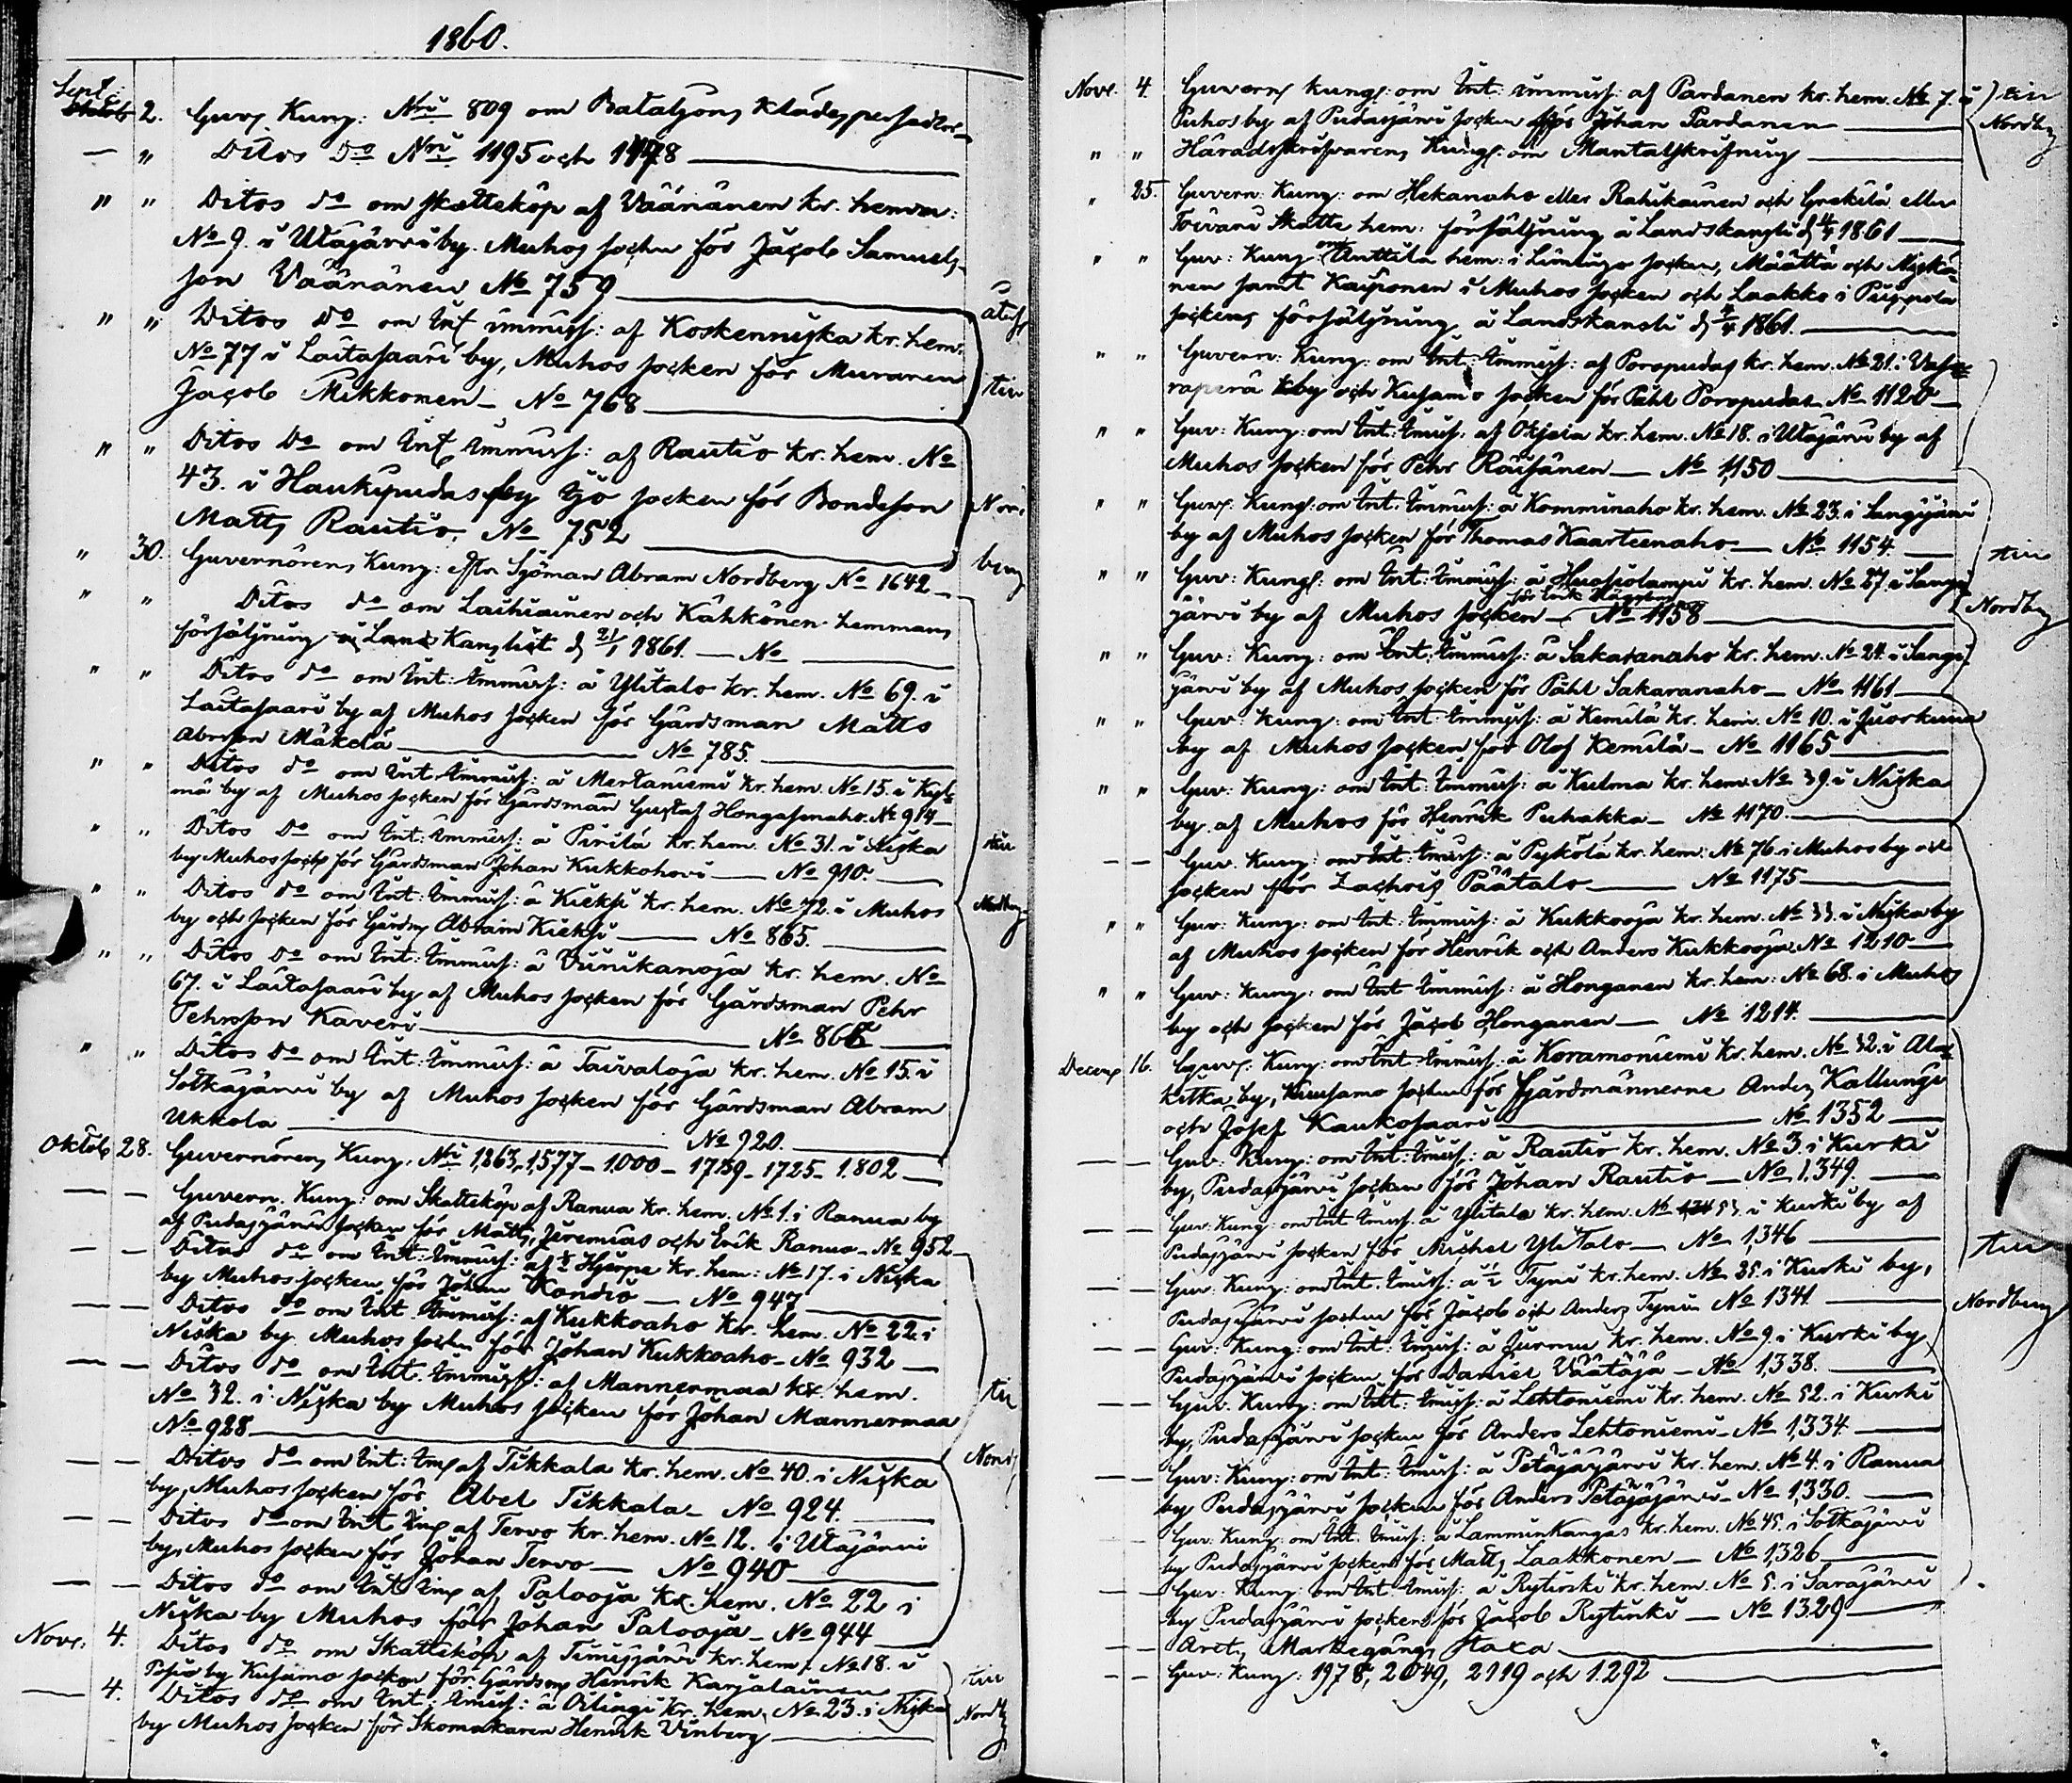 1860.
Sept: 2. Guv Kung: Nris 809 om Bataljons Klädes
— " Ditos Do Nris 1195 och 1178
" " Ditos do om skatteköp af Väänänen kr. hemm:
No 9. i Utajärvi by. Muhos socken för Jacob Samuels-
son Väänänen No 759
" " Ditos Do om Int immiss: af Koskenniska kr. hem.
No 77 i Laitasaari by, Muhos socken för Muraren
Jacob Mikkonen — No 768
" " Ditos Do om Int immiss: af Rautio kr. hem. No
43. i Haukipudas by Ijo socken för Bondeson
Matts Rautio. No 752
" 30. Guvernörens Kung: efter Sjöman Abram Nordberg No 1642
" " Ditos do om Laihiainen och Kähkönen hemmans
försäljning å Lands Kansliet d 21/1 1861. — No
" " Ditos do om Int: Immiss: å Ylitalo kr. hem. No 69. i
Laitasaari by af Muhos socken för Gårdsman Matts
Abrsson Mäkelä No 785.
" " Ditos do om Int. Immiss: å Mertaniemi kr. hem. No 15. i Kyl-
mä by af Muhos socken för Gårdsman Gustaf Hongasenaho. No 914
" " Ditos Do om Int: Immiss: å Pirilä kr. hem. No 31. i Niska
by Muhos sock för Gårdsman Johan Kukkohovi — No 910.
" " Ditos do om Int: Immiss: å Kieksi kr. hem. No 72. i Muhos
by och socken för Gårdsm Abram Kieksi — No 865.
" " Ditos Do om Int: Immiss: å Viinikanoja kr. hem. No
67. i Laitasaari by af Muhos socken för Gårdsman Pehr
Pehrsson Kaveri No 866
" " Ditos Do om Int: Immiss: å Taivaloja kr. hem. No 15. i
Sotkajärvi by af Muhos socken för Gårdsman Abram
Ukkola No 920.
Oktob 28. Guvernörens Kung. Nris 1,863, 1577 — 1000 — 1759 — 1725 — 1.802
— — Guvern. Kung: om Skatteköp af Ranua kr. hem. No 1. i Ranua by
af Pudasjärvi socken för Matts, Jeremias och Erik Ranua — No 952
— — Ditos do om Int: Immiss: af ½ Hjerpe kr. hem: No 17. i Niska
by Muhos socken för Johan Kondio — No 947
— — Ditos do om Int. Immiss: af Kukkoaho kr. hem. No 22. i
Niska by Muhos socken för Johan Kukkoaho — No 932
— — Ditos do om Int. Immiss: af Mannermaa kr. hem.
No 32. i Niska by Muhos socken för Johan Mannermaa
No 928
— — Ditos do om Int: Im af Tikkala kr. hem. No 40. i Niska
by, Muhos socken för Abel Tikkala — No 924.
— — Ditos do om Int Im af Tervo kr. hem. No 12. i Utajärvi
by, Muhos socken för Johan Tervo — No 940
— — Ditos do om Int: Im af Palooja kr. hem. No 22 i
Niska by Muhos för Johan Palooja — No 944
Nov: 4. Ditos do om Skatteköp af Timisjärvi kr. hem. No 18. i
Posio by Kusamo socken för Gårdsm Henrik Karjalainen
— 4. Ditos do om Int: Immiss: å Oilingi kr. hem. No 23. i Niska
by Muhos socken för Skomakaren Henrik Vinberg
utaf
tiu
Nord
berg
tiu
Nordberg
tiu
Nord
tiu
Nordb
Nov: 4. Guvern kung: om Int: immiss: af Pardanen kr. hem. No 7. i
Puhos by af Pudasjärvi socken för Johan Pardanen
" " Häradsskrifvarens Kung: om Mantalskrifning
" 25. Guvern: Kung: om Hekanaho eller Rahikainen och Grekilä eller
Toivari Skatte hem: försäljning å Landskansli d 4/4 1861
" " Guv: Kung om Anttila hem: i Limingo socken, Määttä och Miskä-
nen samt Kauponen i Muhos socken och Laakko i Pulipola
sockens försäljning å Landskansli d 4/4 1861.
" " Guvern: Kung: om Int: Immiss: af Poropudas kr. hem. No 21. i Vasa-
raperä by och Kusamo socken för Påhl Poropudas No 1120
" " Guv: Kung: om Int: Imiss: af Oksia kr. hem. No 18. i Utajärvi by af
Muhos socken för Pehr Räisänen — No 1,150
" " Guv: Kung: om Int: Immiss: å Komminaho kr. hem. No 23. i Sangijärvi
by af Muhos socken för Thomas Kaarteenaho — No 1154
" " Guv: Kung: om Int: Immiss: å Huosiolampi kr. hem. No 27. i Sangi-
för Erik Häggman
järvi by af Muhos socken — No 1158
" " Guv: Kung: om Int: Immiss: å Sakaranaho kr. hem. No 24. i Sangi-
järvi by af Muhos socken för Påhl Sakaranaho — No 1161
" " Guv: Kung: om Int: Immiss: å Kemilä kr. hem. No 10. i Juorkuna
by af Muhos socken för Olof Kemilä — No 1165
" " Guv: Kung: om Int: Immiss: å Kulma kr. hem. No 39. i Niska
by af Muhos för Henrik Puhakka — No 1170.
— — Guv. Kung: om Int: Imiss: å Pykölä kr. hem: No 76. i Muhos by och
socken för Zachris Päätalo — No 1175
" " Guv: Kung: om Int: Immiss: å Kukkooja kr. hem. No 33. i Niska by
af Muhos socken för Henrik och Anders Kukkooja No 1210
" " Guv: Kung: om Int Immiss: å Honganen kr. hem: No 68. i Muhos
by och socken för Jacob Honganen — No 1214.
Decem 16. Guv: Kung: om Int Immiss. å Koramoniemi kr. hem. No 32. i Ala-
kitka by, Kuusamo socken för Gårdmännerne Anders Kallunge
och Josef Kaukosaari No 1352
— — Guv. Kung: om Int: Imiss: å Rautio kr. hem. No 3. i Kurki
by, Pudasjärvi socken för Johan Rautio — No 1,349.
— — Guv: Kung: om Int Imiss. å Ylitalo kr. hem. No 53 i Kurki by af
Pudasjärvi socken för Michel Ylitalo — No 1,346
— — Guv: Kung: om Int. Imiss: å ½ Tyni kr. hem. No 35. i Kurki by,
Pudasjärvi socken för Jacob och Anders Tyni No 1341.
— — Guv: Kung: om Int: Imiss: å Jurmu kr. hem. No 9. i Kurki by
Pudasjärvi socken för Daniel Väätäjä — No 1,338.
— — Guv. Kung: om Int: Imiss: å Lehtoniemi kr. hem. No 52. i Kurki
by, Pudasjärvi socken för Anders Lehtoniemi — No 1,334
— — Guv: Kung: om Int: Imiss: å Petäjäjärvi kr. hem. No 4. i Ranua
by Pudasjärvi socken för Anders Petäjäjärvi — No 1,330.
— Guv: Kung: om Int. Imiss: å Lamminkangas kr. hem. No 45. i Sotkajärvi
by Pudasjärvi socken för Matts Laakkonen — No 1,326
— — Guv: Kung: om Int. Imiss: å Rytinki kr. hem. No 5. i Sarajärvi
by Pudasjärvi socken för Jacob Rytinki — No 1329
— — Årets Markegångs taxa
— — Guv: Kung: 1978, 2049, 2119 och 1.292
tiu
Nordberg
tiu
Nordberg
tiu
Nordberg